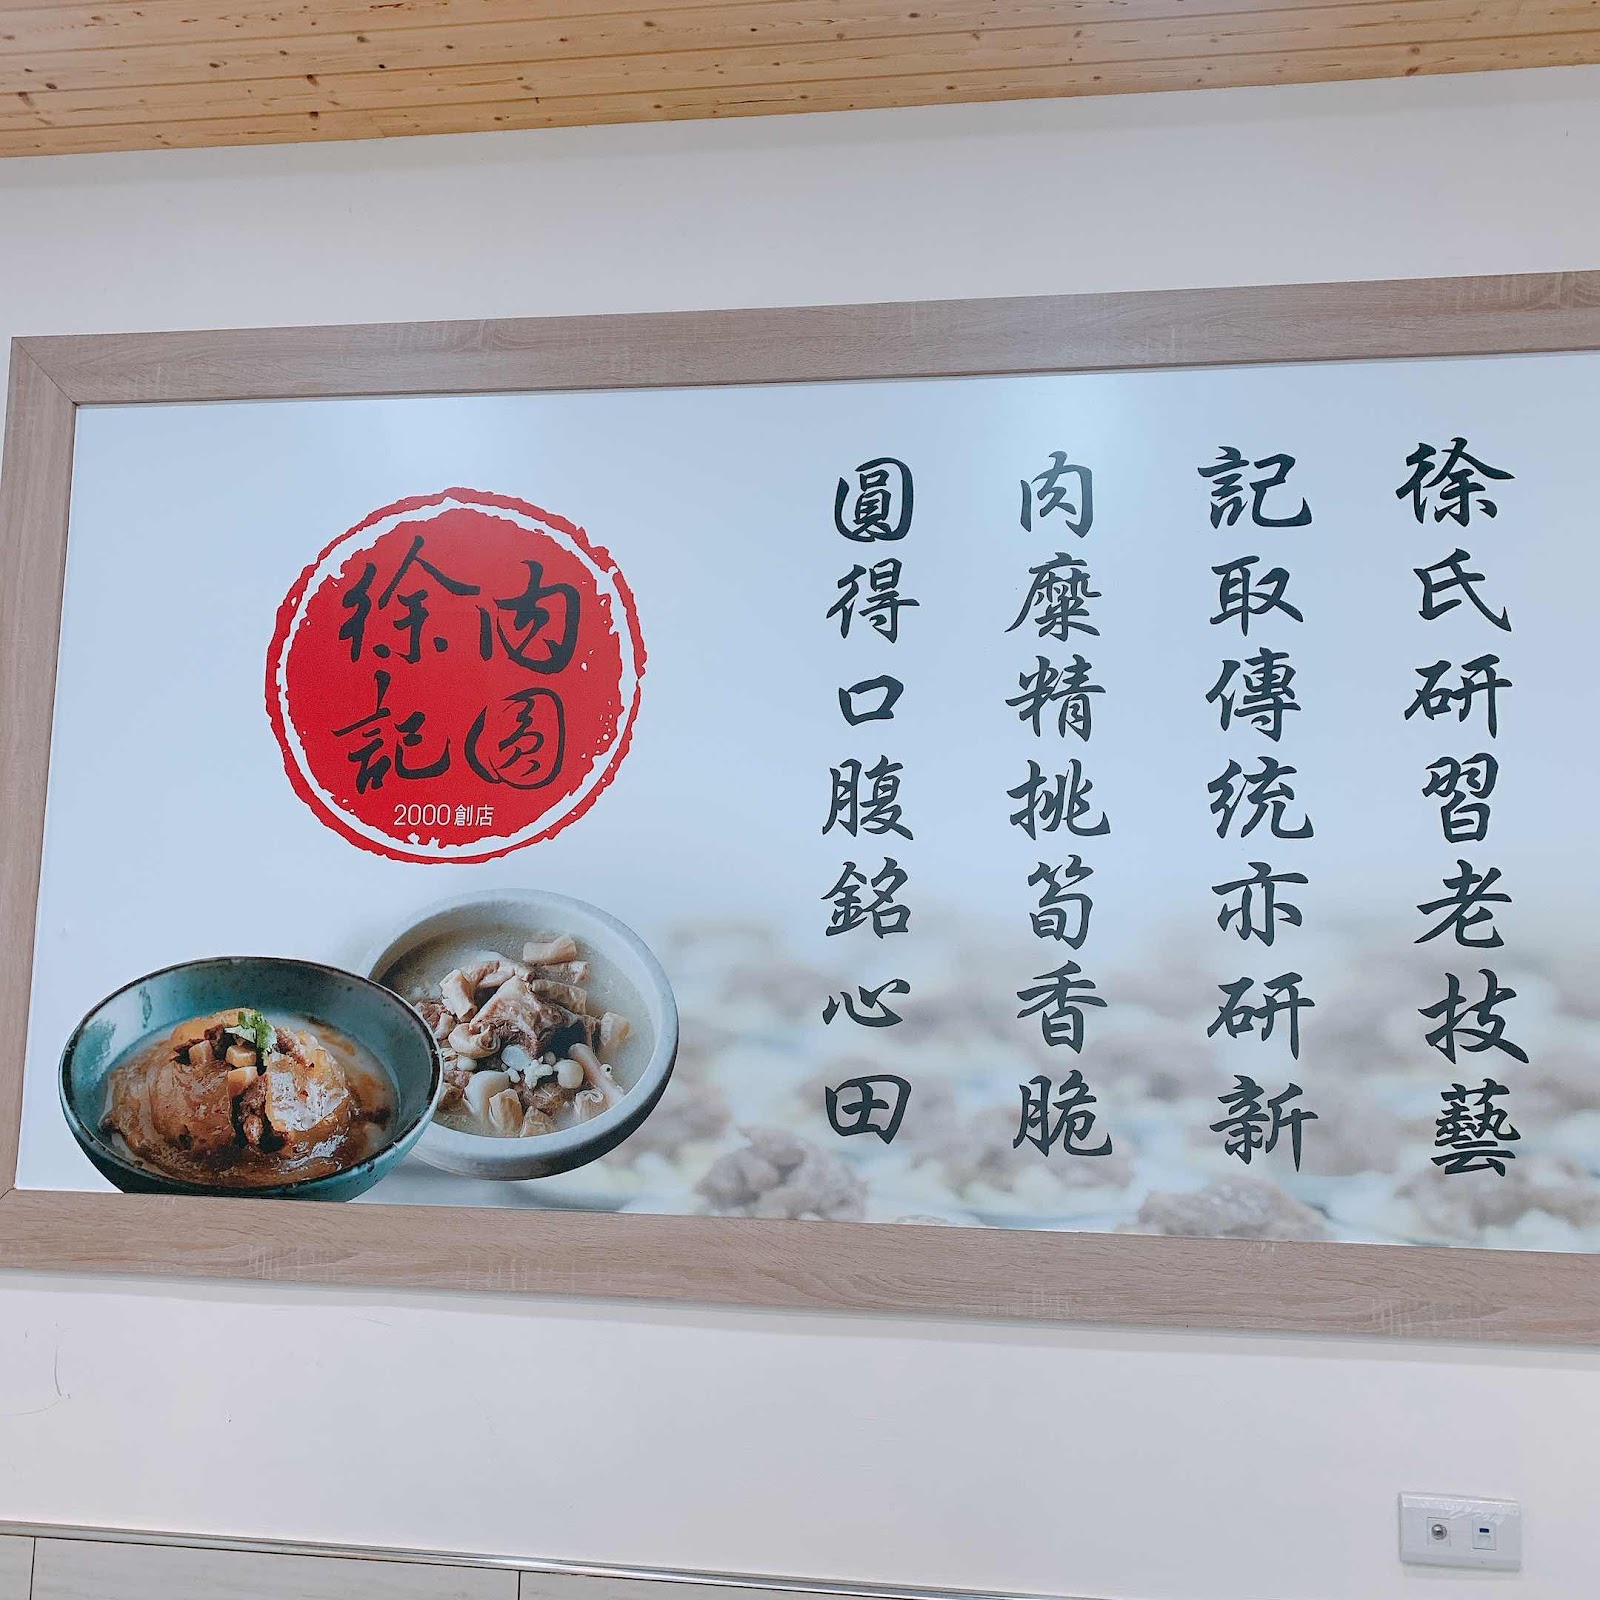 徐氏研習老技藝
記取傳統亦研新
肉糜精挑筍香脆
圓得口腹銘心田
徐記
肉圓
2000創店